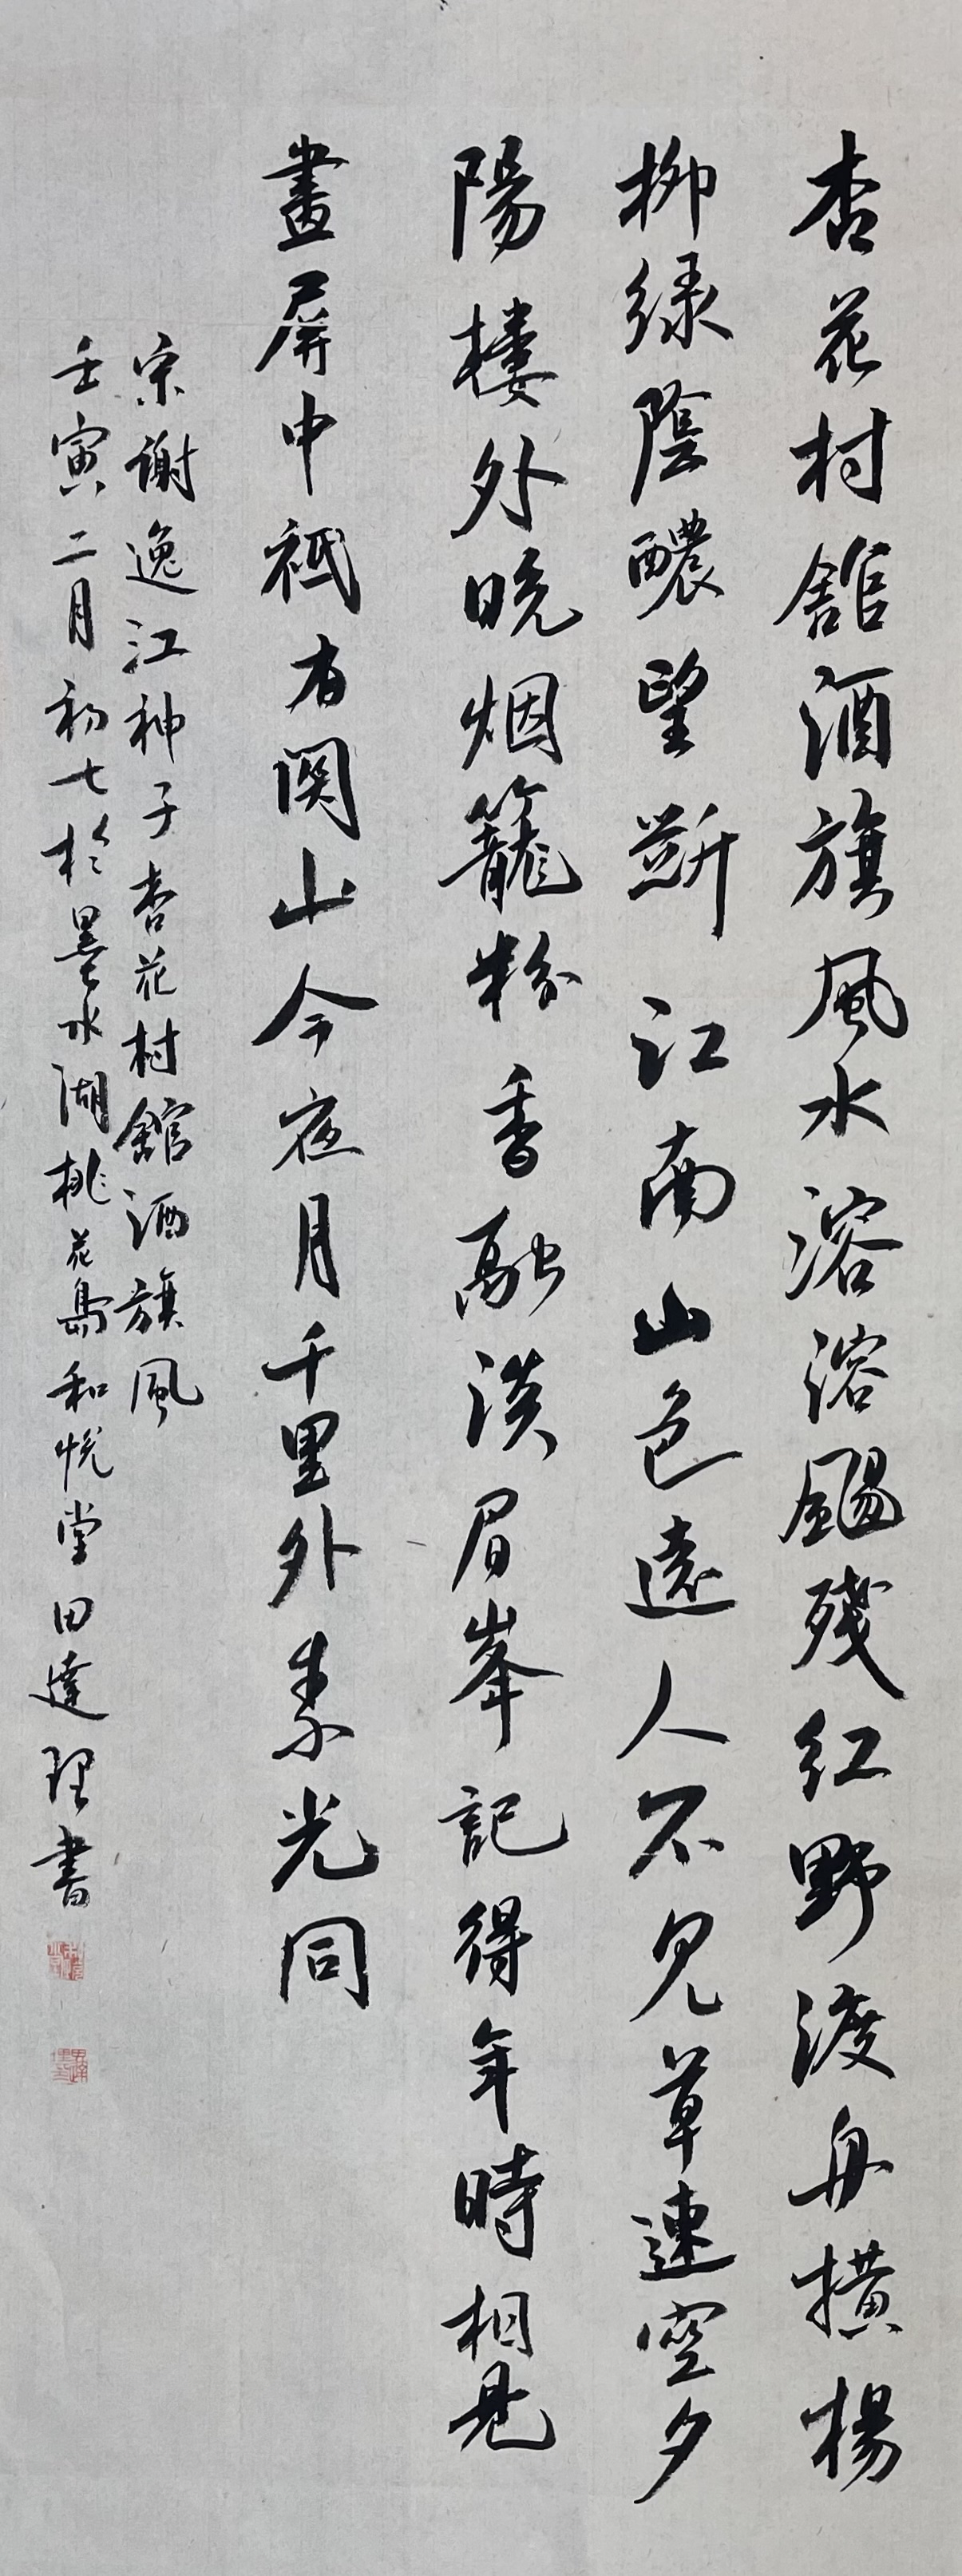 杏花村舘酒旗風水溶溶颺殘紅野渡舟橫楊
柳綠陰醲望斷江南山色遠人不見草連空夕
陽樓外晚烟籠粉香融淡眉峯記得年時相見
畫屏中祗有関山今夜月千里外素光同
宗谢逸江神子杏花村舘酒旗風
壬寅二月初七於墨水湖桃花島和悅堂田達理書